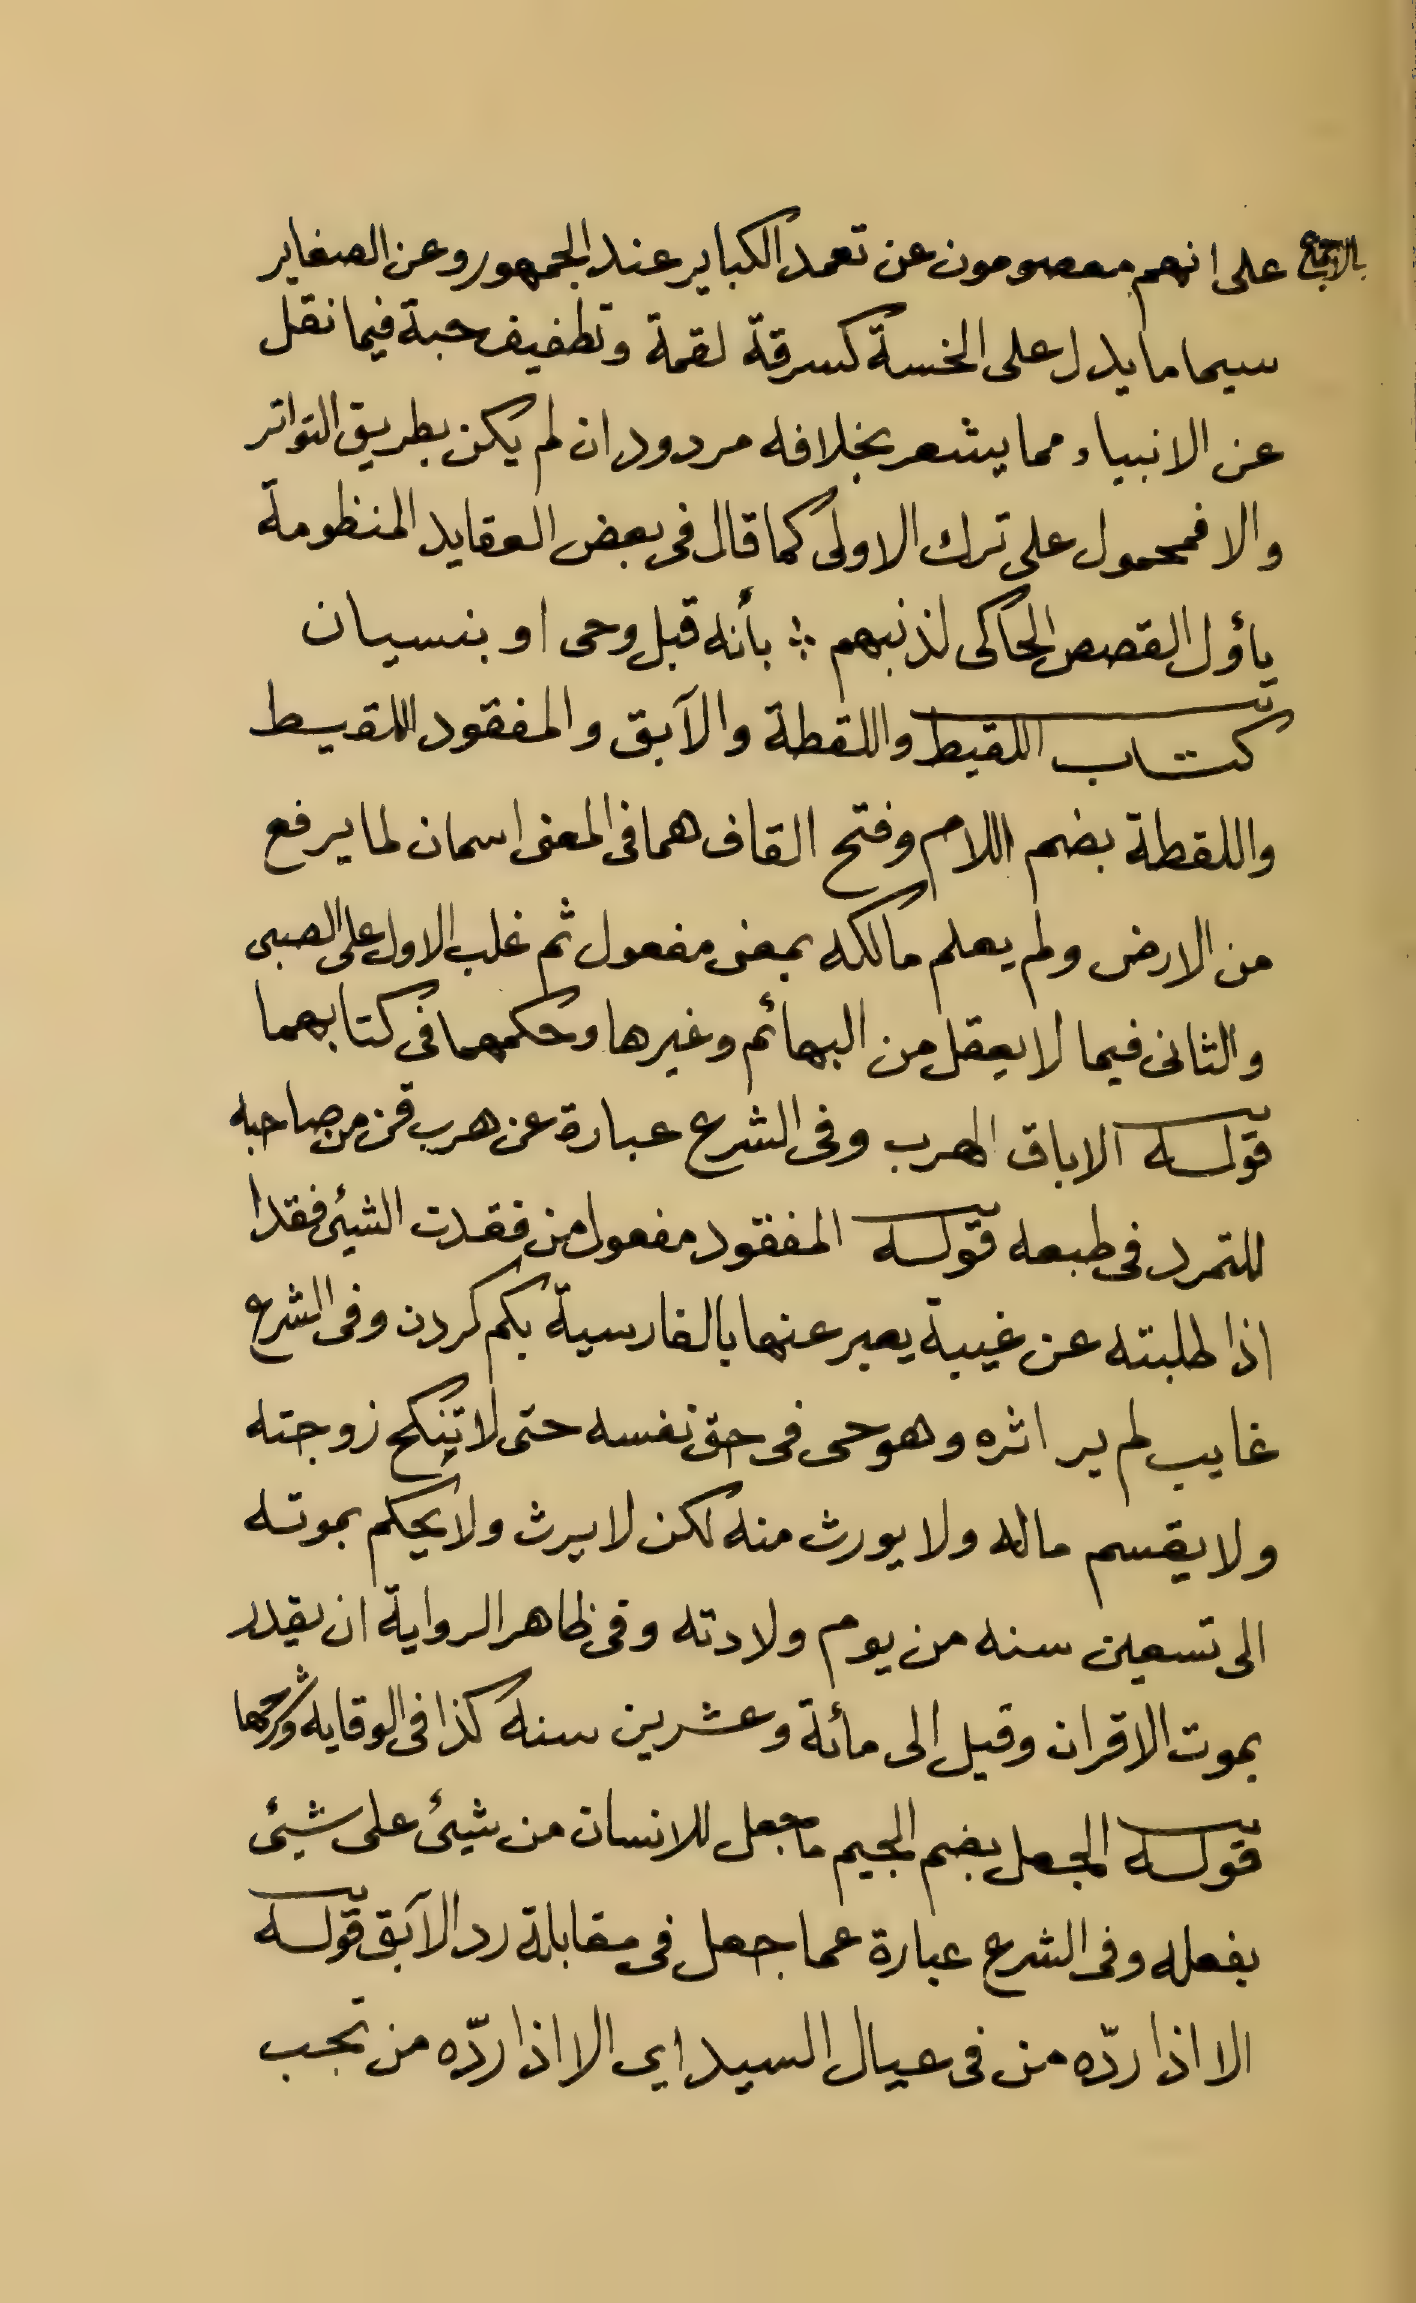 بالاجماع على انهم معصومون عن تعمد الكباير عند الجمهور وعن الصغاير
سيما ما يدل على الخسة كسرقة لقمة وتطفيف حبة فيما نقل
عن الانبياء مما يشعر بخلافه مردود ان لم يكن بطريق التواتر
والا فمحمول على ترك الاولى كما قال فى بعض العقايد المنظومة
يأول القصص الحاكى لذنبهم ؞ بأنه قبل وحى او بنسيان
كتاب اللقيط واللقطة والآبق والمفقود اللقيط
واللقطة بضم اللام وفتح القاف هما فى المعنى اسمان لما يرفع
من الارض ولم يعلم مالكه بمعنى مفعول ثم غلب الاول على الصبى
والثانى فيما لا يعقل من البهائم وغيرها وحكمهما فى كتابهما
قوله الاباق الهرب وفى الشرع عبارة عن هرب قن من صاحبه
للتمرد فى طبعه قوله المفقود مفعول من فقدت الشيئ فقدا
اذا طلبته عن غيبة يعبر عنها بالفارسية بكم كردن وفى الشرع
غايب لم ير اثره وهو حى فى حق نفسه حتى لا تنكح زوجته
ولا يقسم ماله ولا يورث منه لكن لا يرث ولا يحكم بموته
الى تسعين سنه من يوم ولادته وفى ظاهر الرواية ان يقدر
بموت الاقران وقيل الى مائة وعشرين سنه كذا فى الوقايه وشرحها
قوله الجعل بضم الجيم ما جعل للانسان من شيئ على شيئ
بفعله وفى الشرع عبارة عما جعل فى مقابلة رد الآبق قوله
الا اذا ردّه من فى عيال السيد اى الا اذا ردّه من تجب